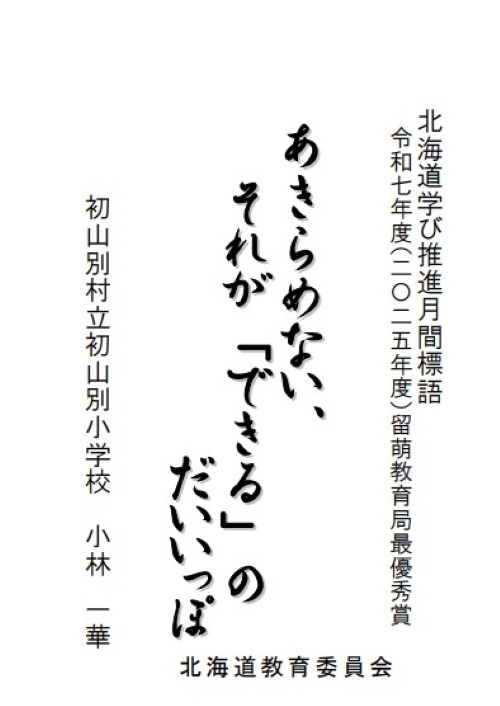 北海道学び推進月間標語
令和七年度(二〇二五年度)留萌教育局最優秀賞
あきらめない、
それが「できる」の
だいいっぽ
初山別村立初山別小学校　小林　一華
北海道教育委員会